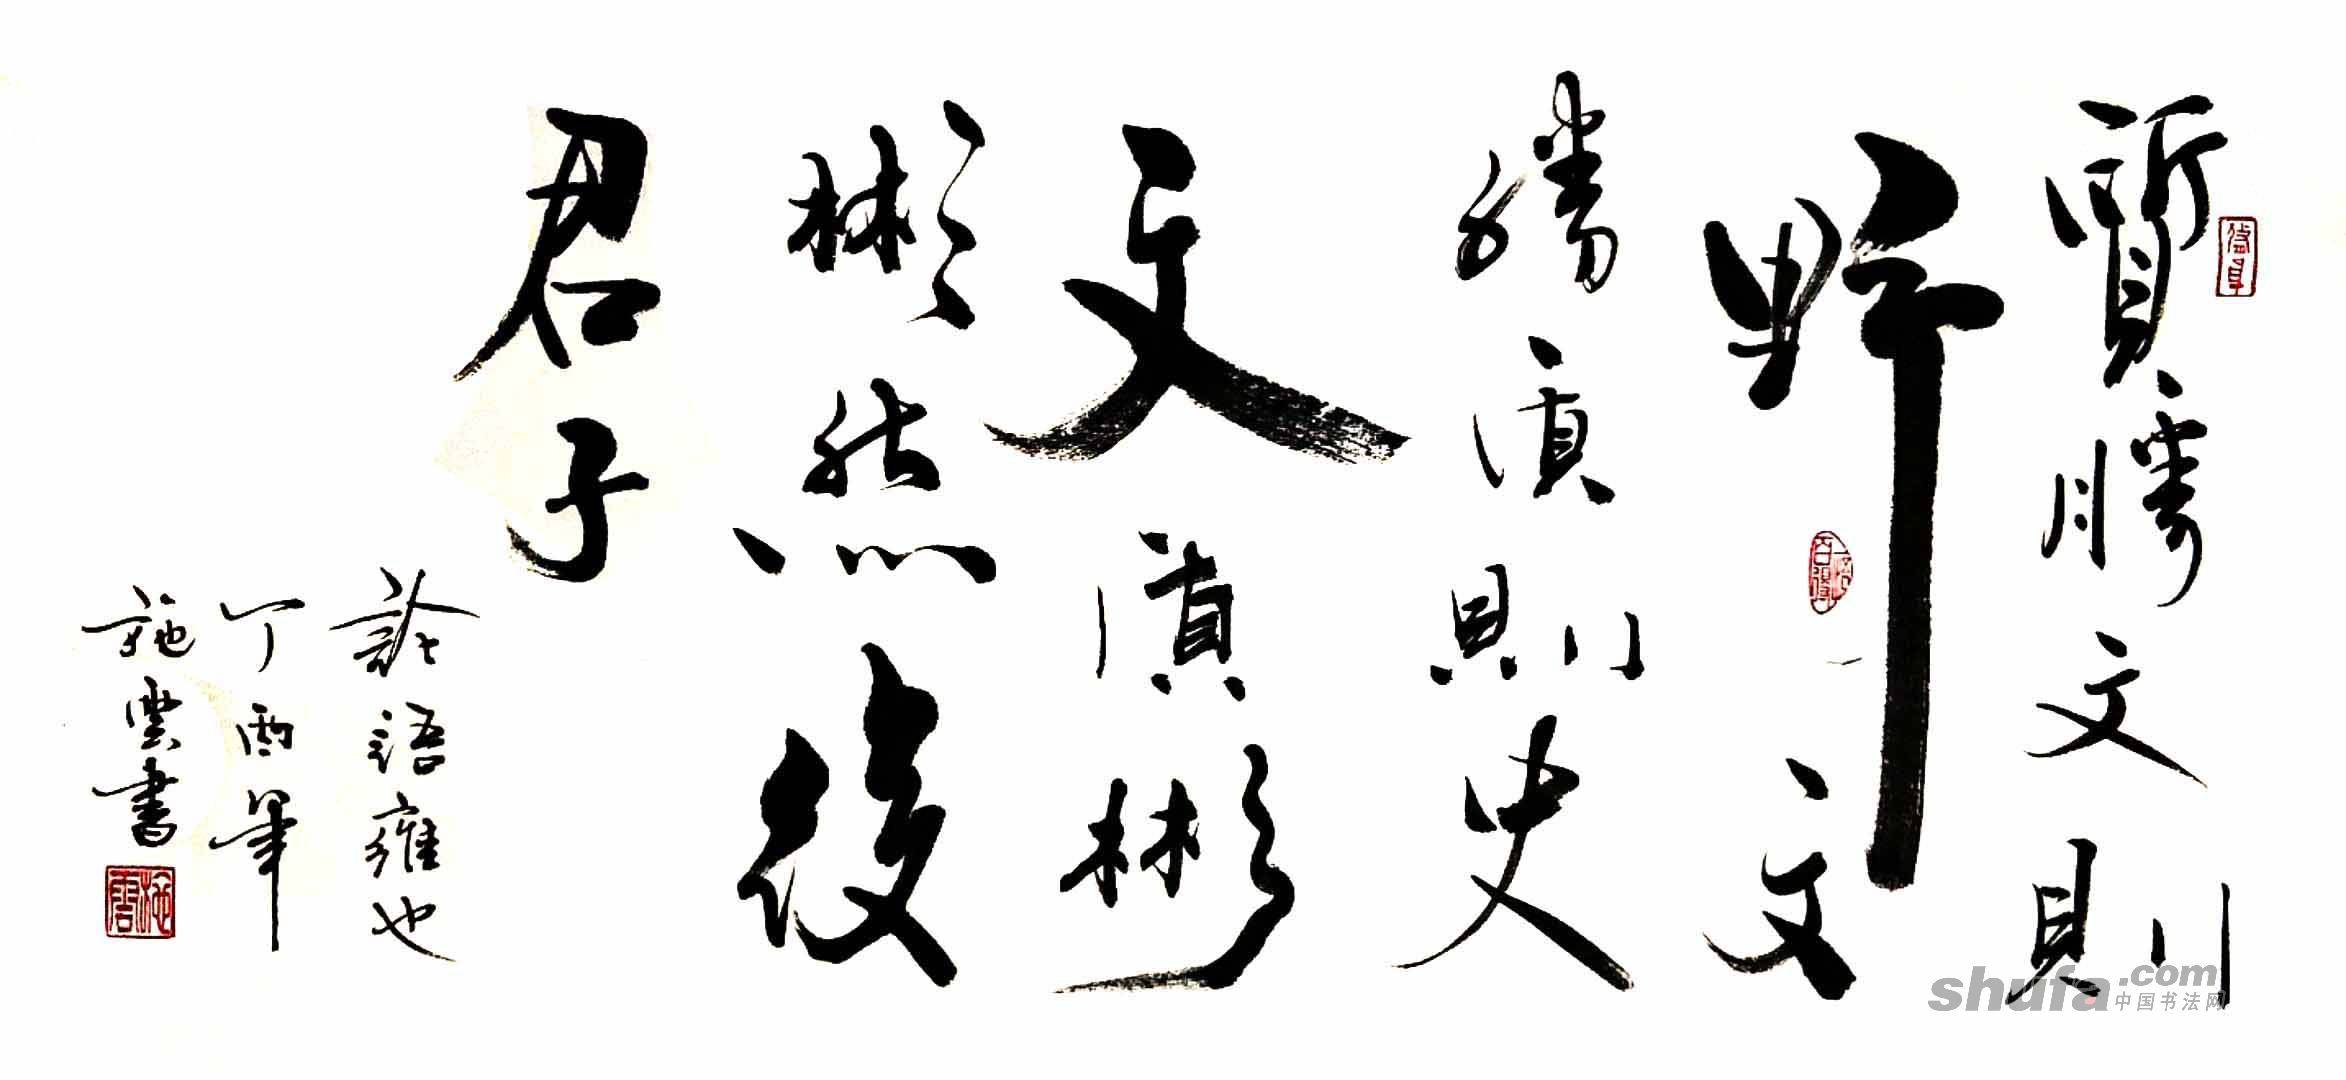 質勝文則
野文
勝質則史
文質彬
彬然後
君子
論語雍也
丁酉
施雲書
施雲
shufa.com
中国书法网